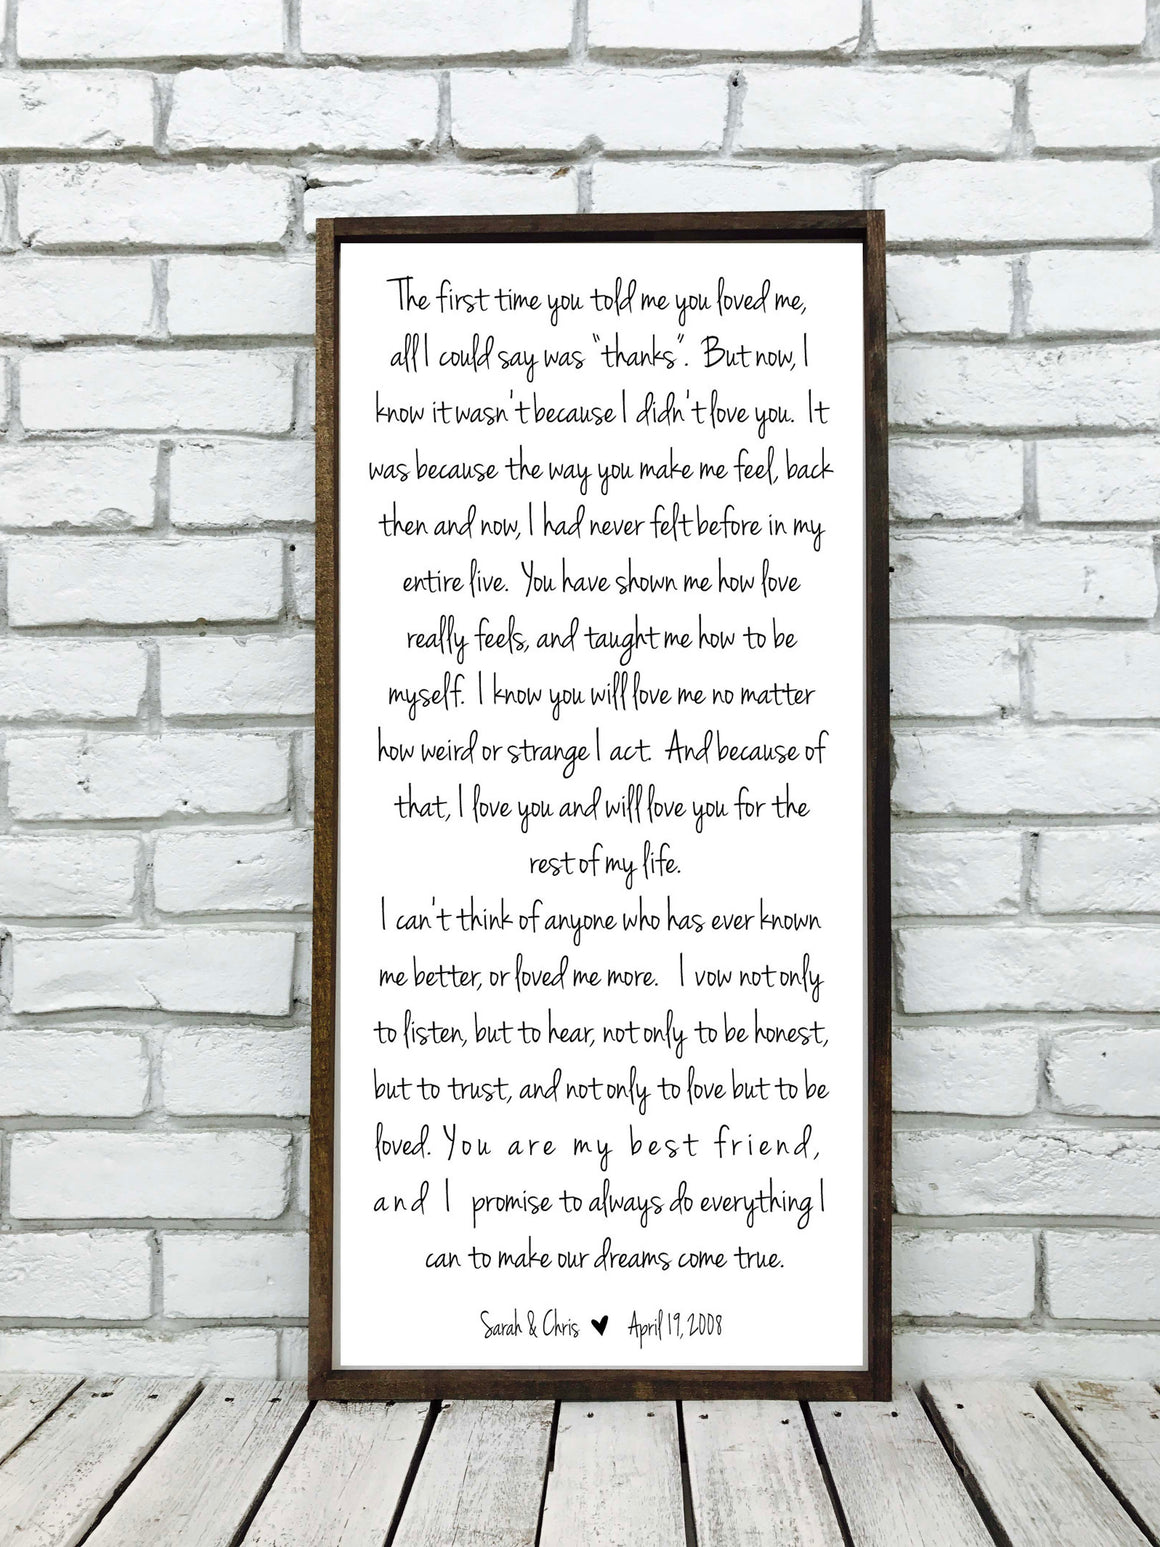 The first time you told me you loved me,
all I could say was "thanks". But now, I
know it wasn't because I didn't love you. It
was because the way you make me feel, back
then and now, I had never felt before in my
entire live. You have shown me how love
really feels, and taught me how to be
myself. I know you will love me no matter
how weird or strange I act. And because of
that, I love you and will love you for the
rest of my life.
I can't think of anyone who has ever known
me better, or loved me more. I vow not only
to listen, but to hear, not only to be honest,
but to trust, and not only to love but to be
loved. You are my best friend,
and I promise to always do everything I
can to make our dreams come true.
Sarah & Chris ♥ April 19, 2008